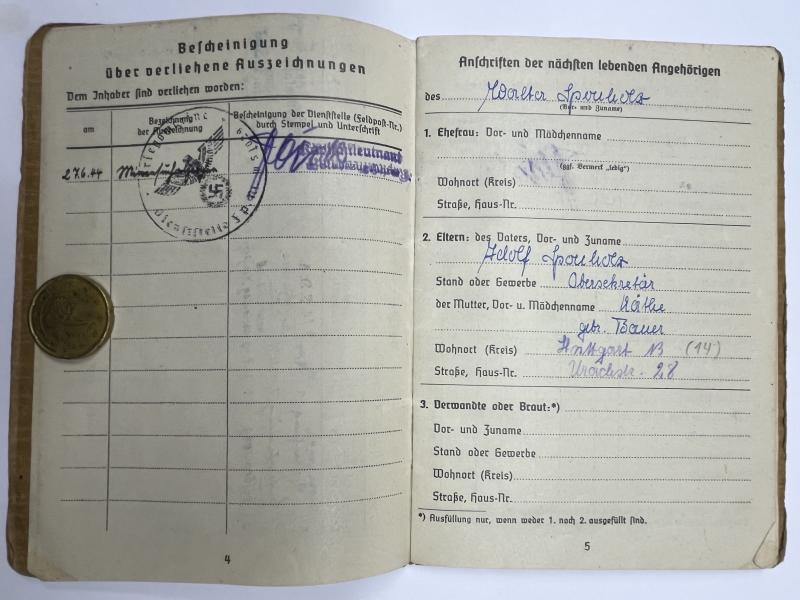 Bescheinigung
über verliehene Auszeichnungen
Dem Inhaber sind verliehen worden:
am
Bezeichnung der Auszeichnung
Bescheinigung der Dienststelle (Feldpost-Nr.) durch Stempel und Unterschrift
27.6.44
Dienststelle
4
Anschriften der nächsten lebenden Angehörigen
des Walter
(Vor- und Zuname)
1. Ehefrau: Vor- und Mädchenname
(ggf. Vermerk „ledig")
Wohnort (Kreis)
Straße, Haus-Nr.
2. Eltern: des Vaters, Vor- und Zuname
Adolf
Stand oder Gewerbe Obersekretär
der Mutter, Vor- u. Mädchenname Käthe
geb. Bauer
Wohnort (Kreis) Stuttgart 13 (14)
Straße, Haus-Nr. Urachstr. 28
3. Verwandte oder Braut:*)
Vor- und Zuname
Stand oder Gewerbe
Wohnort (Kreis)
Straße, Haus-Nr.
*) Ausfüllung nur, wenn weder 1. noch 2. ausgefüllt sind.
5